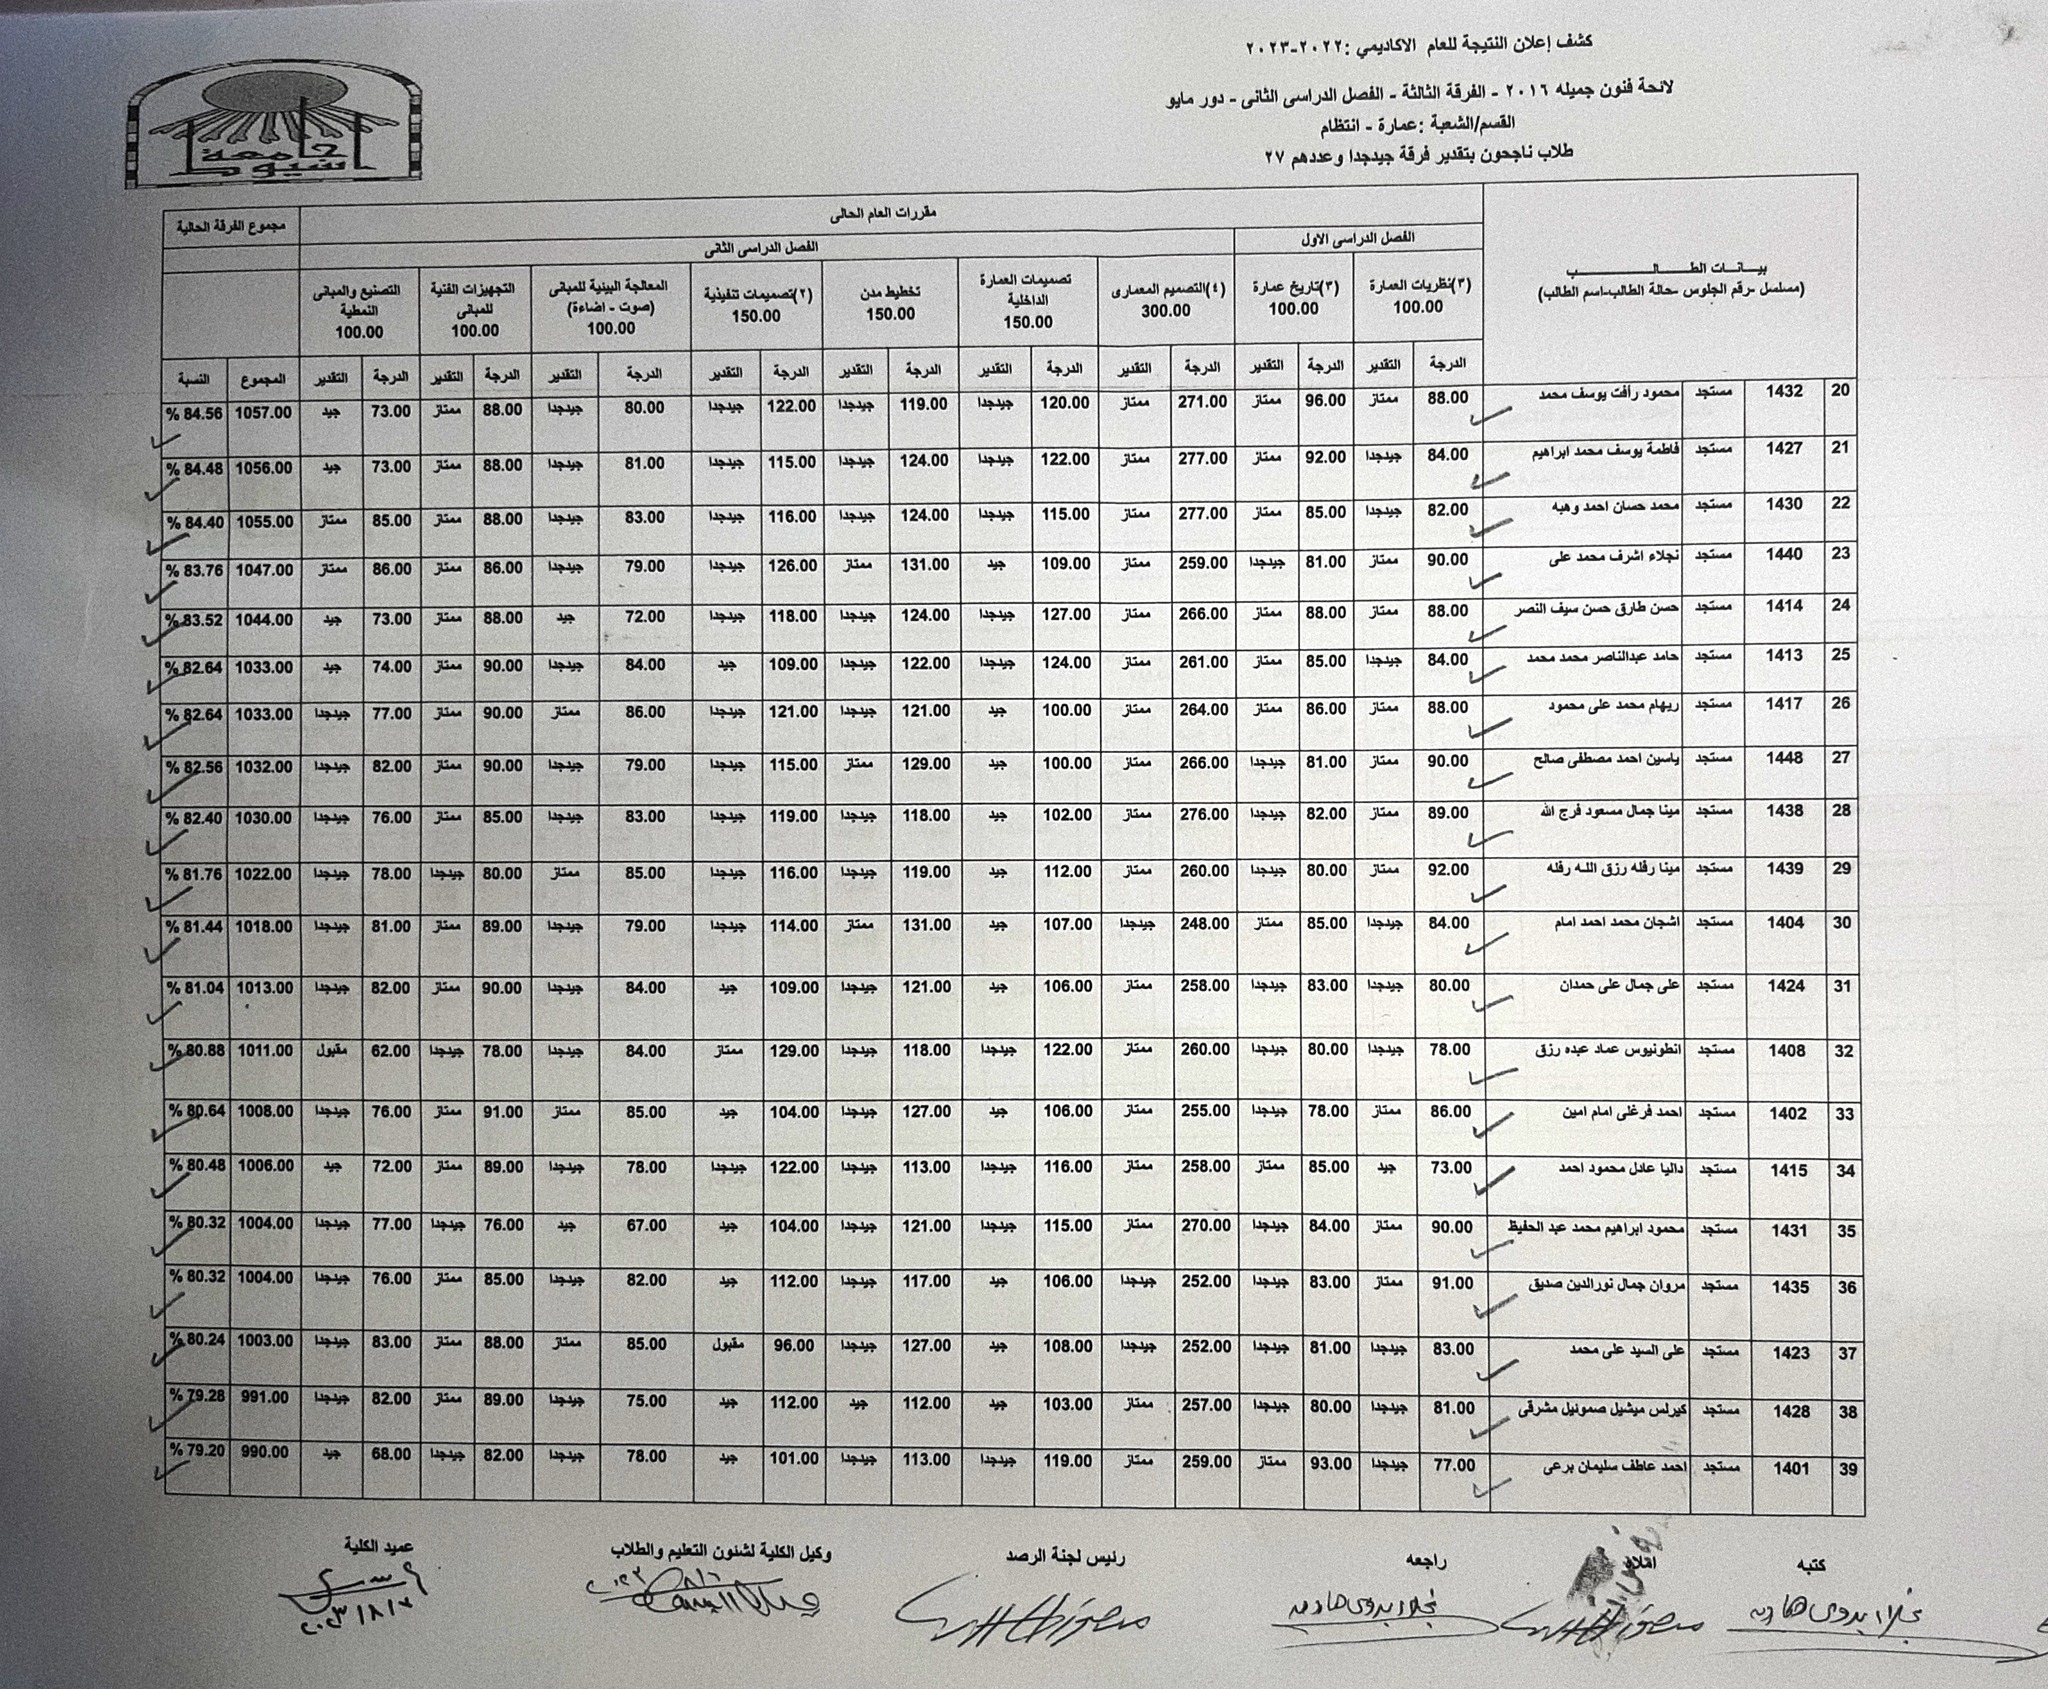 كشف إعلان النتيجة للعام الاكاديمي :٢٠٢٢-٢٠٢٣
لائحة فنون جميله ٢٠١٦ - الفرقة الثالثة - الفصل الدراسى الثانى - دور مايو
القسم/الشعبة :عمارة - انتظام
طلاب ناجحون بتقدير فرقة جيدجدا وعددهم ٢٧
جامعة اسيوط
بيـــانـات الطـــالـــــــب
(مسلسل -رقم الجلوس -حالة الطالب-اسم الطالب)
مقررات العام الحالى
مجموع الفرقة الحالية
الفصل الدراسى الاول
الفصل الدراسى الثانى
(٣)نظريات العمارة 100.00
(٣)تاريخ عمارة 100.00
(٤)التصميم المعمارى 300.00
تصميمات العمارة الداخلية 150.00
تخطيط مدن 150.00
(٢)تصميمات تنفيذية 150.00
المعالجة البيئية للمبانى (صوت - اضاءة) 100.00
التجهيزات الفنية للمبانى 100.00
التصنيع والمبانى النمطية 100.00
الدرجة التقدير الدرجة التقدير الدرجة التقدير الدرجة التقدير الدرجة التقدير الدرجة التقدير الدرجة التقدير الدرجة التقدير الدرجة التقدير المجموع النسبة
20 1432 مستجد محمود رأفت يوسف محمد 88.00 ممتاز 96.00 ممتاز 271.00 ممتاز 120.00 جيدجدا 119.00 جيدجدا 122.00 جيدجدا 80.00 جيدجدا 88.00 ممتاز 73.00 جيد 1057.00 84.56 %
21 1427 مستجد فاطمة يوسف محمد ابراهيم 84.00 جيدجدا 92.00 ممتاز 277.00 ممتاز 122.00 جيدجدا 124.00 جيدجدا 115.00 جيدجدا 81.00 جيدجدا 88.00 ممتاز 73.00 جيد 1056.00 84.48 %
22 1430 مستجد محمد حسان احمد وهبه 82.00 جيدجدا 85.00 ممتاز 277.00 ممتاز 115.00 جيدجدا 124.00 جيدجدا 116.00 جيدجدا 83.00 جيدجدا 88.00 ممتاز 85.00 ممتاز 1055.00 84.40 %
23 1440 مستجد نجلاء اشرف محمد على 90.00 ممتاز 81.00 جيدجدا 259.00 ممتاز 109.00 جيد 131.00 ممتاز 126.00 جيدجدا 79.00 جيدجدا 86.00 ممتاز 86.00 ممتاز 1047.00 83.76 %
24 1414 مستجد حسن طارق حسن سيف النصر 88.00 ممتاز 88.00 ممتاز 266.00 ممتاز 127.00 جيدجدا 124.00 جيدجدا 118.00 جيدجدا 72.00 جيد 88.00 ممتاز 73.00 جيد 1044.00 83.52 %
25 1413 مستجد حامد عبدالناصر محمد محمد 84.00 جيدجدا 85.00 ممتاز 261.00 ممتاز 124.00 جيدجدا 122.00 جيدجدا 109.00 جيد 84.00 جيدجدا 90.00 ممتاز 74.00 جيد 1033.00 82.64 %
26 1417 مستجد ريهام محمد على محمود 88.00 ممتاز 86.00 ممتاز 264.00 ممتاز 100.00 جيد 121.00 جيدجدا 121.00 جيدجدا 86.00 ممتاز 90.00 ممتاز 77.00 جيدجدا 1033.00 82.64 %
27 1448 مستجد ياسين احمد مصطفى صالح 90.00 ممتاز 81.00 جيدجدا 266.00 ممتاز 100.00 جيد 129.00 ممتاز 115.00 جيدجدا 79.00 جيدجدا 90.00 ممتاز 82.00 جيدجدا 1032.00 82.56 %
28 1438 مستجد مينا جمال مسعود فرج الله 89.00 ممتاز 82.00 جيدجدا 276.00 ممتاز 102.00 جيد 118.00 جيدجدا 119.00 جيدجدا 83.00 جيدجدا 85.00 ممتاز 76.00 جيدجدا 1030.00 82.40 %
29 1439 مستجد مينا رفله رزق الله رفله 92.00 ممتاز 80.00 جيدجدا 260.00 ممتاز 112.00 جيد 119.00 جيدجدا 116.00 جيدجدا 85.00 ممتاز 80.00 جيدجدا 78.00 جيدجدا 1022.00 81.76 %
30 1404 مستجد اشجان محمد احمد امام 84.00 جيدجدا 85.00 ممتاز 248.00 جيدجدا 107.00 جيد 131.00 ممتاز 114.00 جيدجدا 79.00 جيدجدا 89.00 ممتاز 81.00 جيدجدا 1018.00 81.44 %
31 1424 مستجد على جمال على حمدان 80.00 جيدجدا 83.00 جيدجدا 258.00 ممتاز 106.00 جيد 121.00 جيدجدا 109.00 جيد 84.00 جيدجدا 90.00 ممتاز 82.00 جيدجدا 1013.00 81.04 %
32 1408 مستجد انطونيوس عماد عبده رزق 78.00 جيدجدا 80.00 جيدجدا 260.00 ممتاز 122.00 جيدجدا 118.00 جيدجدا 129.00 ممتاز 84.00 جيدجدا 78.00 جيدجدا 62.00 مقبول 1011.00 80.88 %
33 1402 مستجد احمد فرغلى امام امين 86.00 ممتاز 78.00 جيدجدا 255.00 ممتاز 106.00 جيد 127.00 جيدجدا 104.00 جيد 85.00 ممتاز 91.00 ممتاز 76.00 جيدجدا 1008.00 80.64 %
34 1415 مستجد داليا عادل محمود احمد 73.00 جيد 85.00 ممتاز 258.00 ممتاز 116.00 جيدجدا 113.00 جيدجدا 122.00 جيدجدا 78.00 جيدجدا 89.00 ممتاز 72.00 جيد 1006.00 80.48 %
35 1431 مستجد محمود ابراهيم محمد عبد الحفيظ 90.00 ممتاز 84.00 جيدجدا 270.00 ممتاز 115.00 جيدجدا 121.00 جيدجدا 104.00 جيد 67.00 جيد 76.00 جيدجدا 77.00 جيدجدا 1004.00 80.32 %
36 1435 مستجد مروان جمال نورالدين صديق 91.00 ممتاز 83.00 جيدجدا 252.00 جيدجدا 106.00 جيد 117.00 جيدجدا 112.00 جيد 82.00 جيدجدا 85.00 ممتاز 76.00 جيدجدا 1004.00 80.32 %
37 1423 مستجد على السيد على محمد 83.00 جيدجدا 81.00 جيدجدا 252.00 جيدجدا 108.00 جيد 127.00 جيدجدا 96.00 مقبول 85.00 ممتاز 88.00 ممتاز 83.00 جيدجدا 1003.00 80.24 %
38 1428 مستجد كيرلس ميشيل صموئيل مشرقى 81.00 جيدجدا 80.00 جيدجدا 257.00 ممتاز 103.00 جيد 112.00 جيد 112.00 جيد 75.00 جيدجدا 89.00 ممتاز 82.00 جيدجدا 991.00 79.28 %
39 1401 مستجد احمد عاطف سليمان برعى 77.00 جيدجدا 93.00 ممتاز 259.00 ممتاز 119.00 جيدجدا 113.00 جيدجدا 101.00 جيد 78.00 جيدجدا 82.00 جيدجدا 68.00 جيد 990.00 79.20 %
كتبه املاه راجعه رئيس لجنة الرصد وكيل الكلية لشئون التعليم والطلاب عميد الكلية